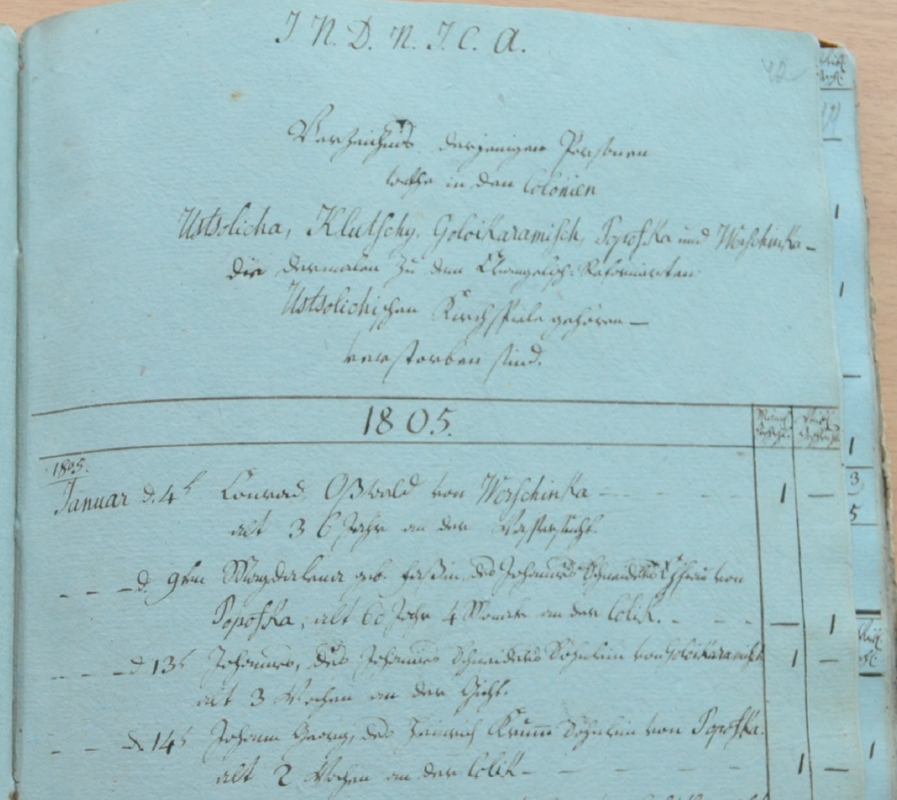 I. N. D. N. J. C. A.
42
Verzeichnis derjenigen Personen
welche in den Colonien
Ustsolicha, Klutschy, Goloikaramisch, Popofka und Werschinka –
die dermalen zu dem Evangelisch-Reformirten
Ustsolichischen Kirchspiele gehören –
verstorben sind.
1805.
1805.
Januar d. 4t Conrad Oßwald von Werschinka 1 –
alt 36 Jahr an der Wassersucht.
d. 9ten Magdalena geb. des Johannes Schneiders Ehefrau von
Popofka, alt 60 Jahr 4 Monate an der Colik. – 1
d 13t Johannes, des Johannes Schneiders Söhnlein von Goloikaramisch 1 –
alt 3 Wochen an der Gicht.
d. 14t Johann Georg, des Heinrich Krumm Söhnlein von Popofka.
alt 2 Wochen an der Colik – 1 –